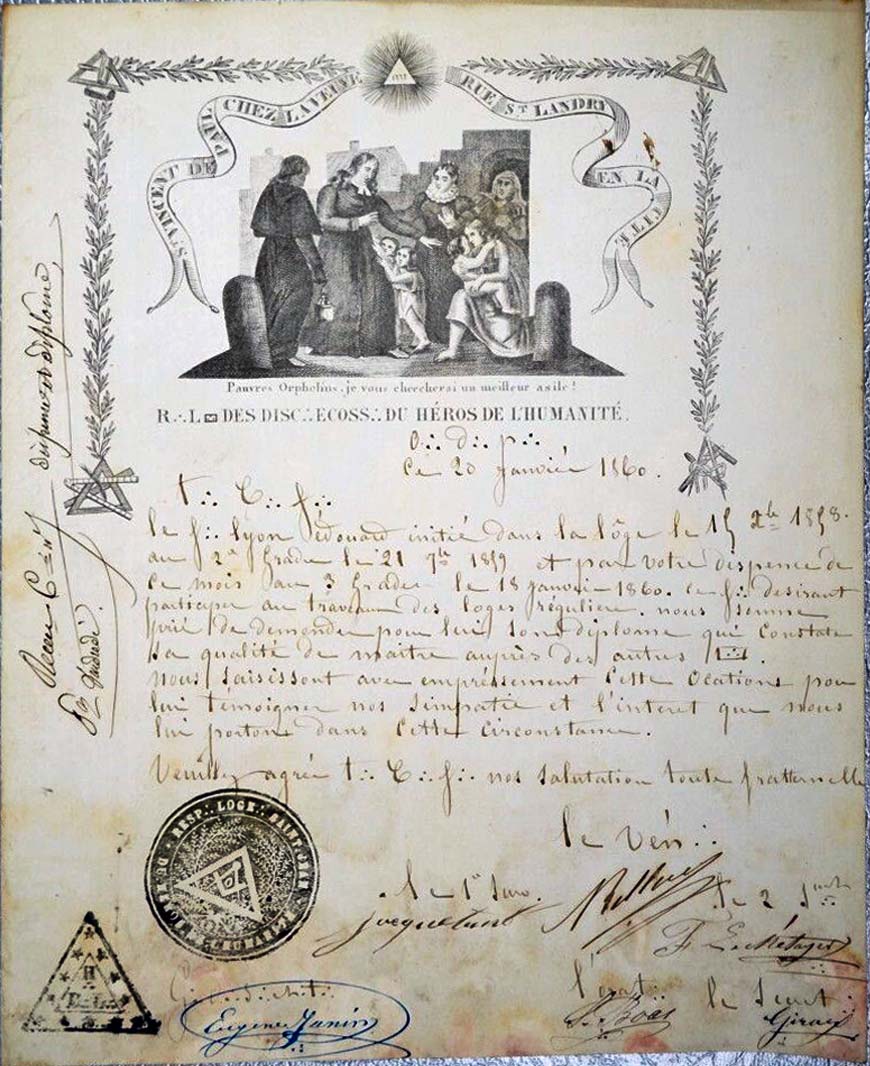 St. VINCENT DE PAUL CHEZ LA VEUVE RUE St. LANDRI EN LA CITÉ
Pauvres Orphelins, je vous chercherai un meilleur asile!
R∴ L DES DISC∴ ECOSS∴ DU HÉROS DE L'HUMANITÉ.
O∴ d∴ p∴
Ce 20 Janvier 1860.
t∴ C∴ f∴
le f∴ Lyon édouard initié dans la lôge le 15 xbre 1858.
au 2e Grade le 21 7bre 1859 et par votre dispence de
ce mois au 3 Grade le 18 janvier 1860. Ce f∴ desirant
participer au travaux des loges régulière. nous somme
prié de demander pour lui son diplome qui constate
sa qualité de maitre auprès des autres
nous saisissont avec empréssement cette ocations pour
lui témoigner nos simpatie et l'interet que nous
lui portons dans cette circonstance.
Veuillez agrée t∴ C∴ f∴ nos salutation toute fratternelle
le Vén∴
le 1er Surv.
le 2 Surv∴
l'orat∴
le Secret∴
Eugene Janin
S. Boas
Giraud
dispense et diplome
RESP∴ LOGE